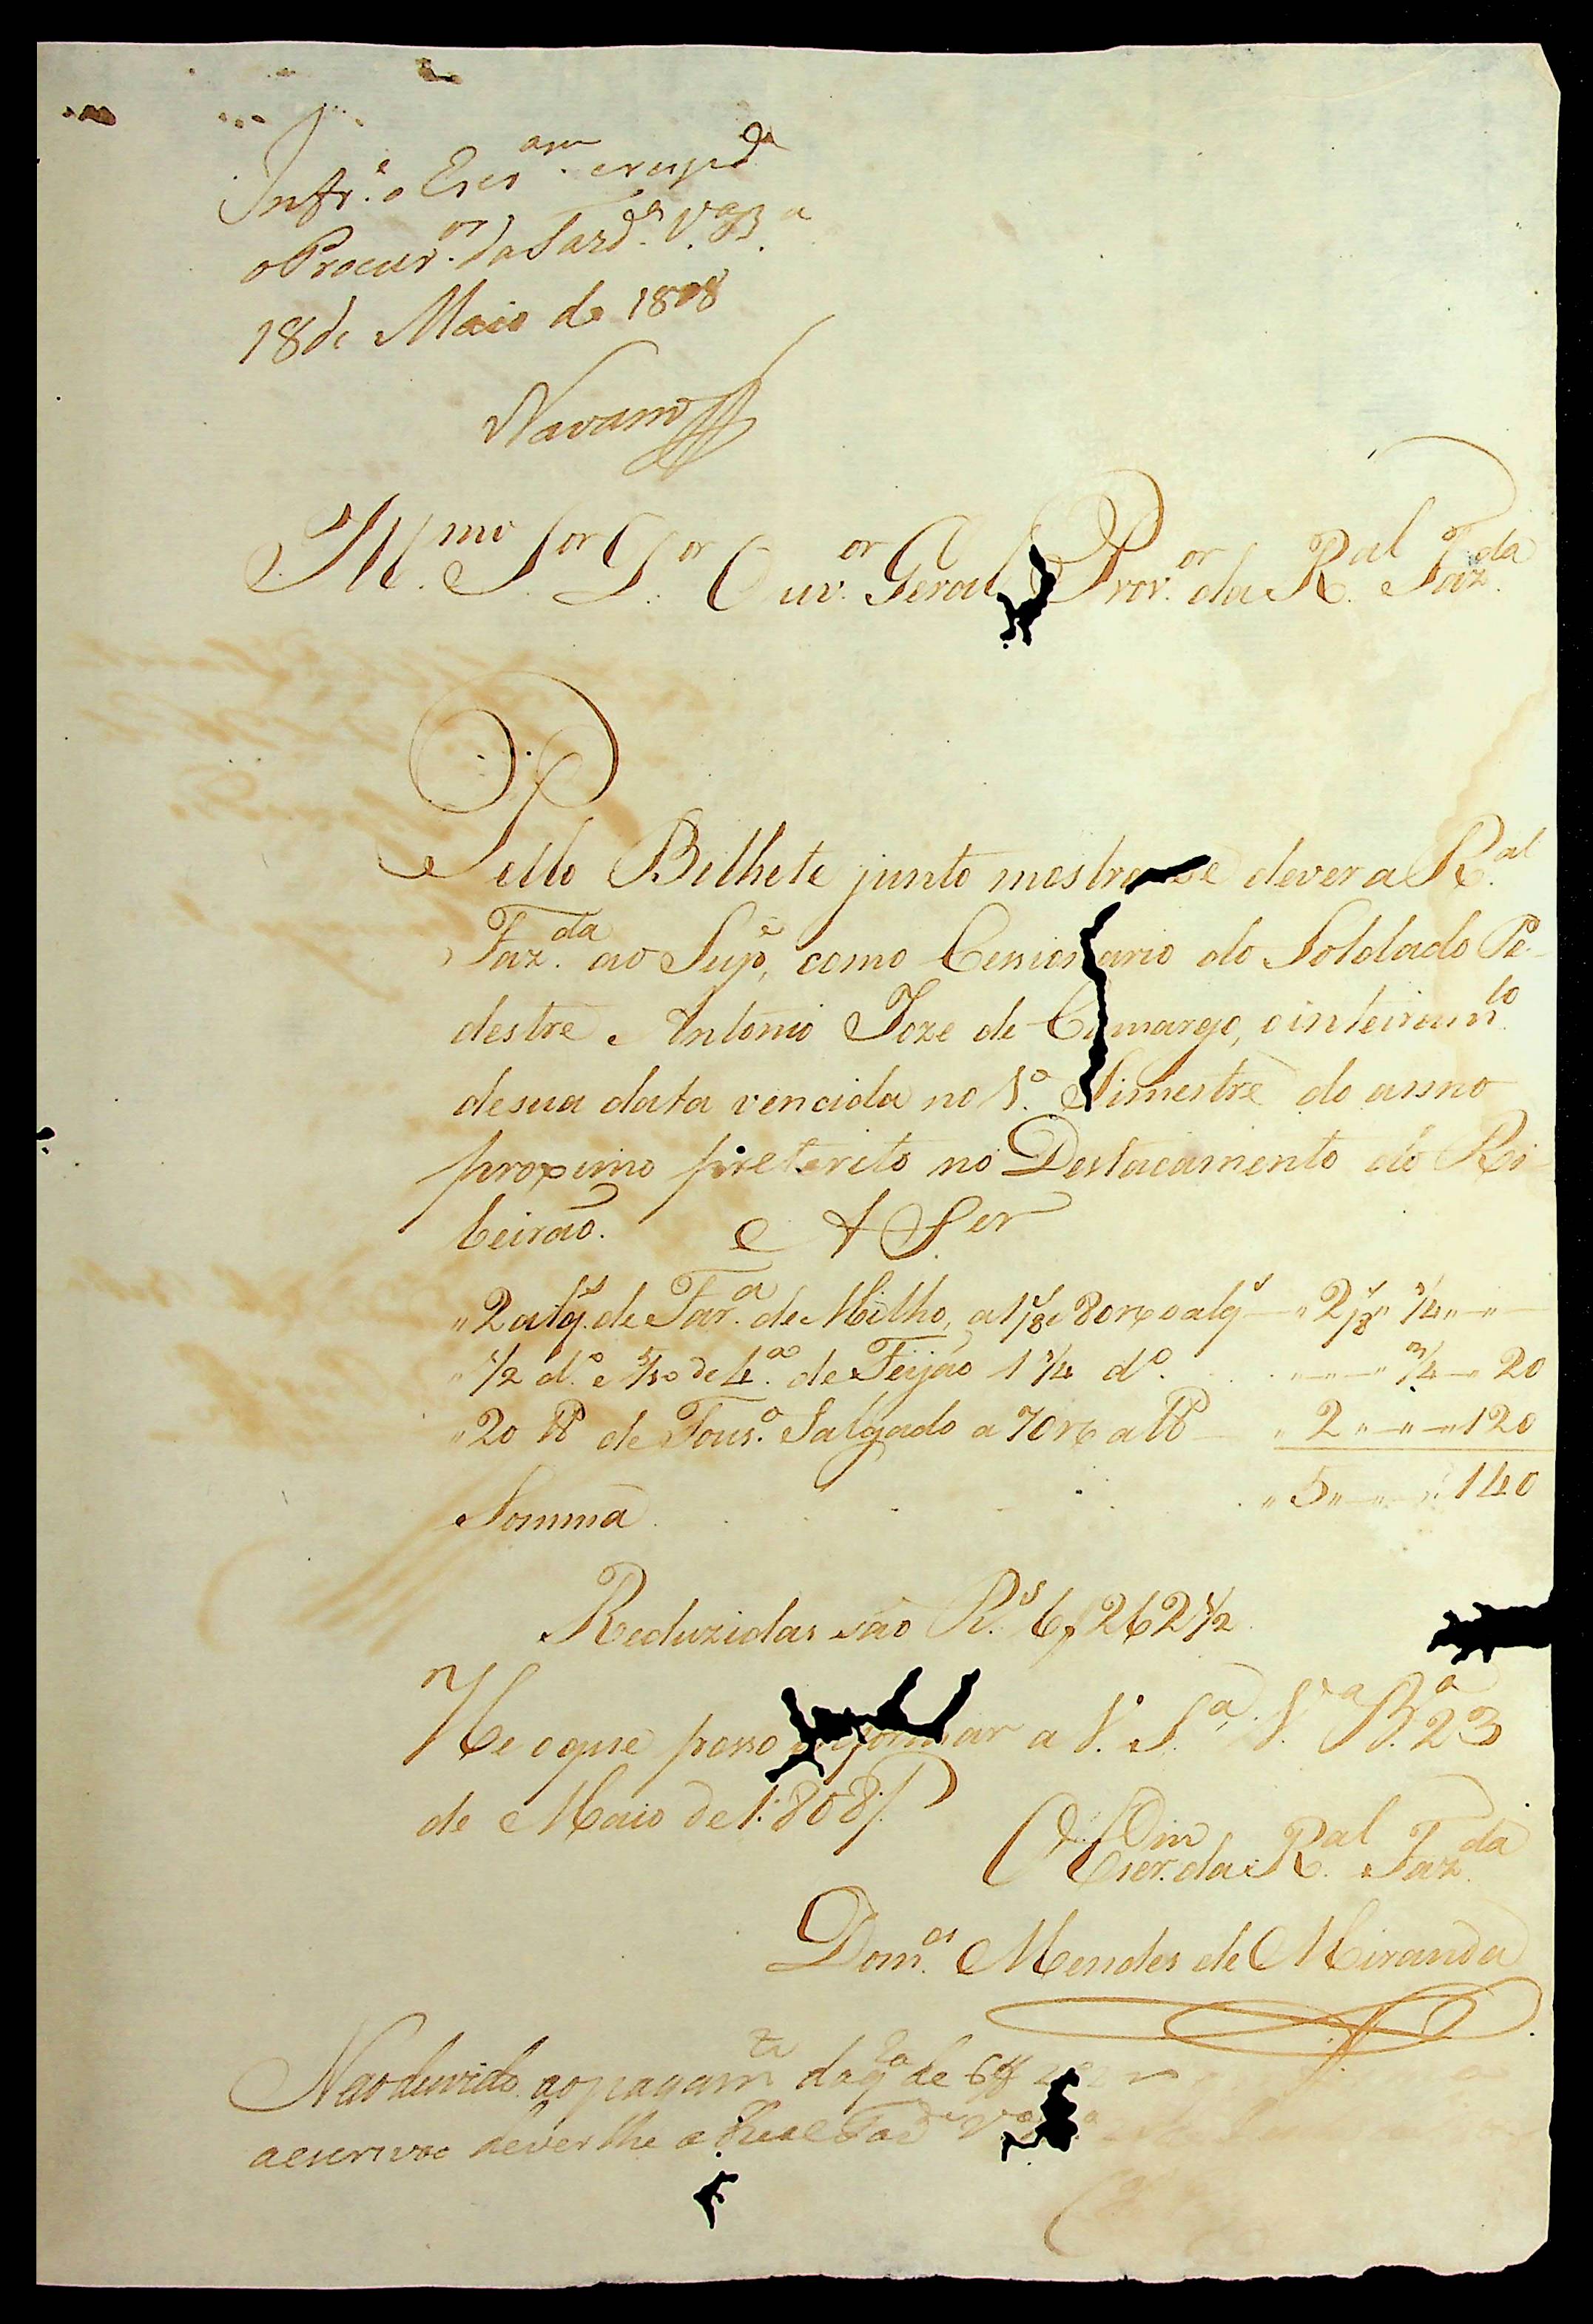 Infr.e o Escr.am e resp.da
o Procur.or da Fazd.a V.a B.a
18 de Maio de 1808
Navarro
Ill.mo S.or D.or Ouv.or Geral Prov.or da R.al Faz.da
Pello Bilhete junto mostra-se dever a R.al
Faz.da ao Sup.e, como Cessionario do Soldado Pe-
destre Antonio Joze de Camargo, o inteiram.to
de sua data vencida no 1.o Simestre do anno
proximo preterito no Destacamento do Ri-
beirão. A Ser
" 2 alq.s de Far.a de Milho, a 1/8 e 80 r o alq
" 1/2 d.o e 5/10 de 4.a de Feijão 1 1/4 d.o " 3/4 " 20
" 20 lb de Tous.o Salgado a 70 r a lb " 2 " " 120
Somma " 5 " " 140
Reduzidas são R.s 6$262 1/2
He o que posso informar a V. S.a V.a B.a 23
de Maio de 1808
O Escr.am da R.al Faz.da
Dom.os Mendes de Miranda
Não duvido ao pagam.to da q.ta de 6$
a escrivão dever lhe a Real Fazd.a V.a